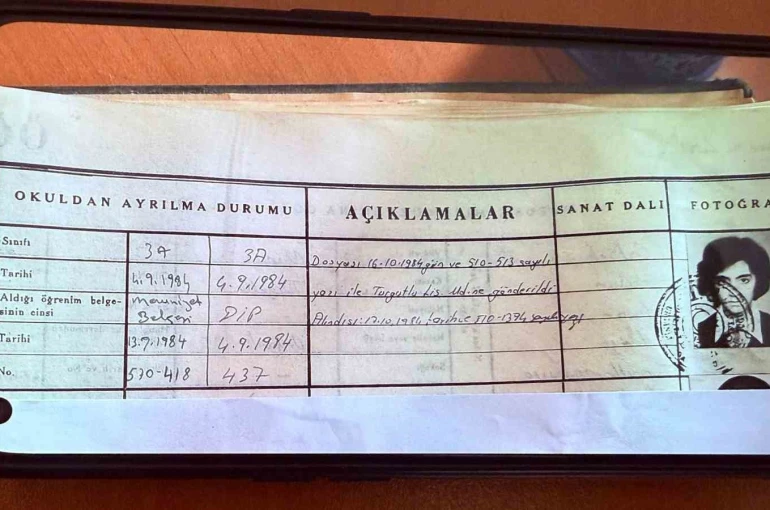 OKULDAN AYRILMA DURUMU
AÇIKLAMALAR
SANAT DALI
FOTOĞRA
Sınıfı
3A
3A
Tarihi
4.9.1984
4.9.1984
Aldığı öğrenim belge-
sinin cinsi
Mezuniyet
Belgesi
DİP
Tarihi
13.7.1984
4.9.1984
No.
510-418
437
Dosyası 16-10-1984 gün ve 510-513 sayılı
yazı ile Turgutlu Lis. Md.ne gönderildi
Alındısı: 17.10.1984 tarih ve 510-1374